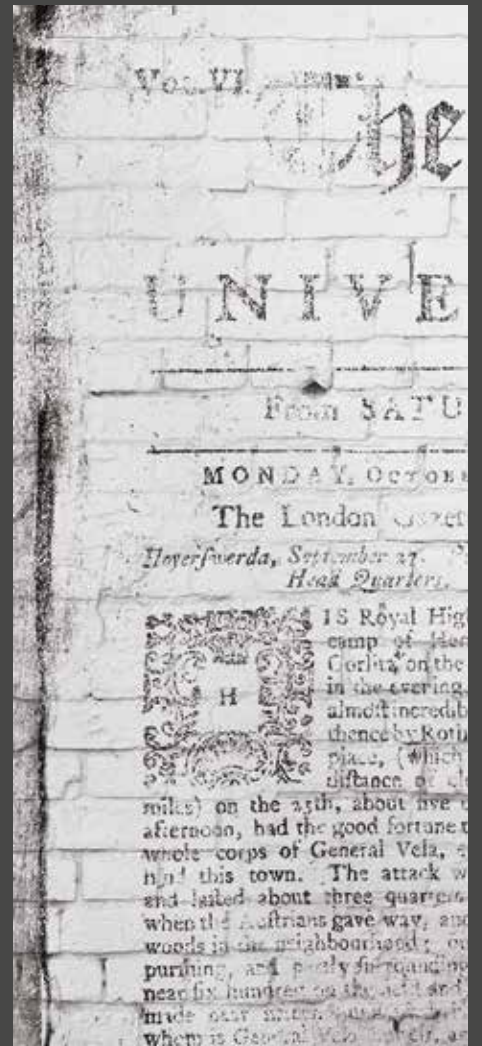 Vol. VI.
The
UNIVE
From SATU
MONDAY, OCTOBE
The London Gazet
Hoyerſwerda, September 27.
Head Quarters,
H
IS Royal Hig
camp of Her
Gorlitz, on the
in the evening,
almoſt incredib
thence by Roth
place, (which
diſtance of el
miles) on the 25th, about five o
afternoon, had the good fortune t
whole corps of General Vela,
hind this town. The attack w
and laſted about three quarters
when the Auſtrians gave way, and
woods in the neighbourhood; ou
purſuing, and partly ſurrounding
near ſix hundred on the and
made near
whom is General